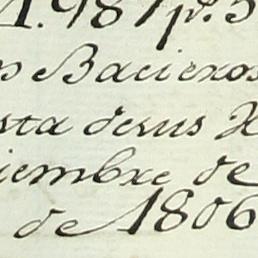 1.987 p.s
os Bacieros
sta de sus X
iembre de
de 1806